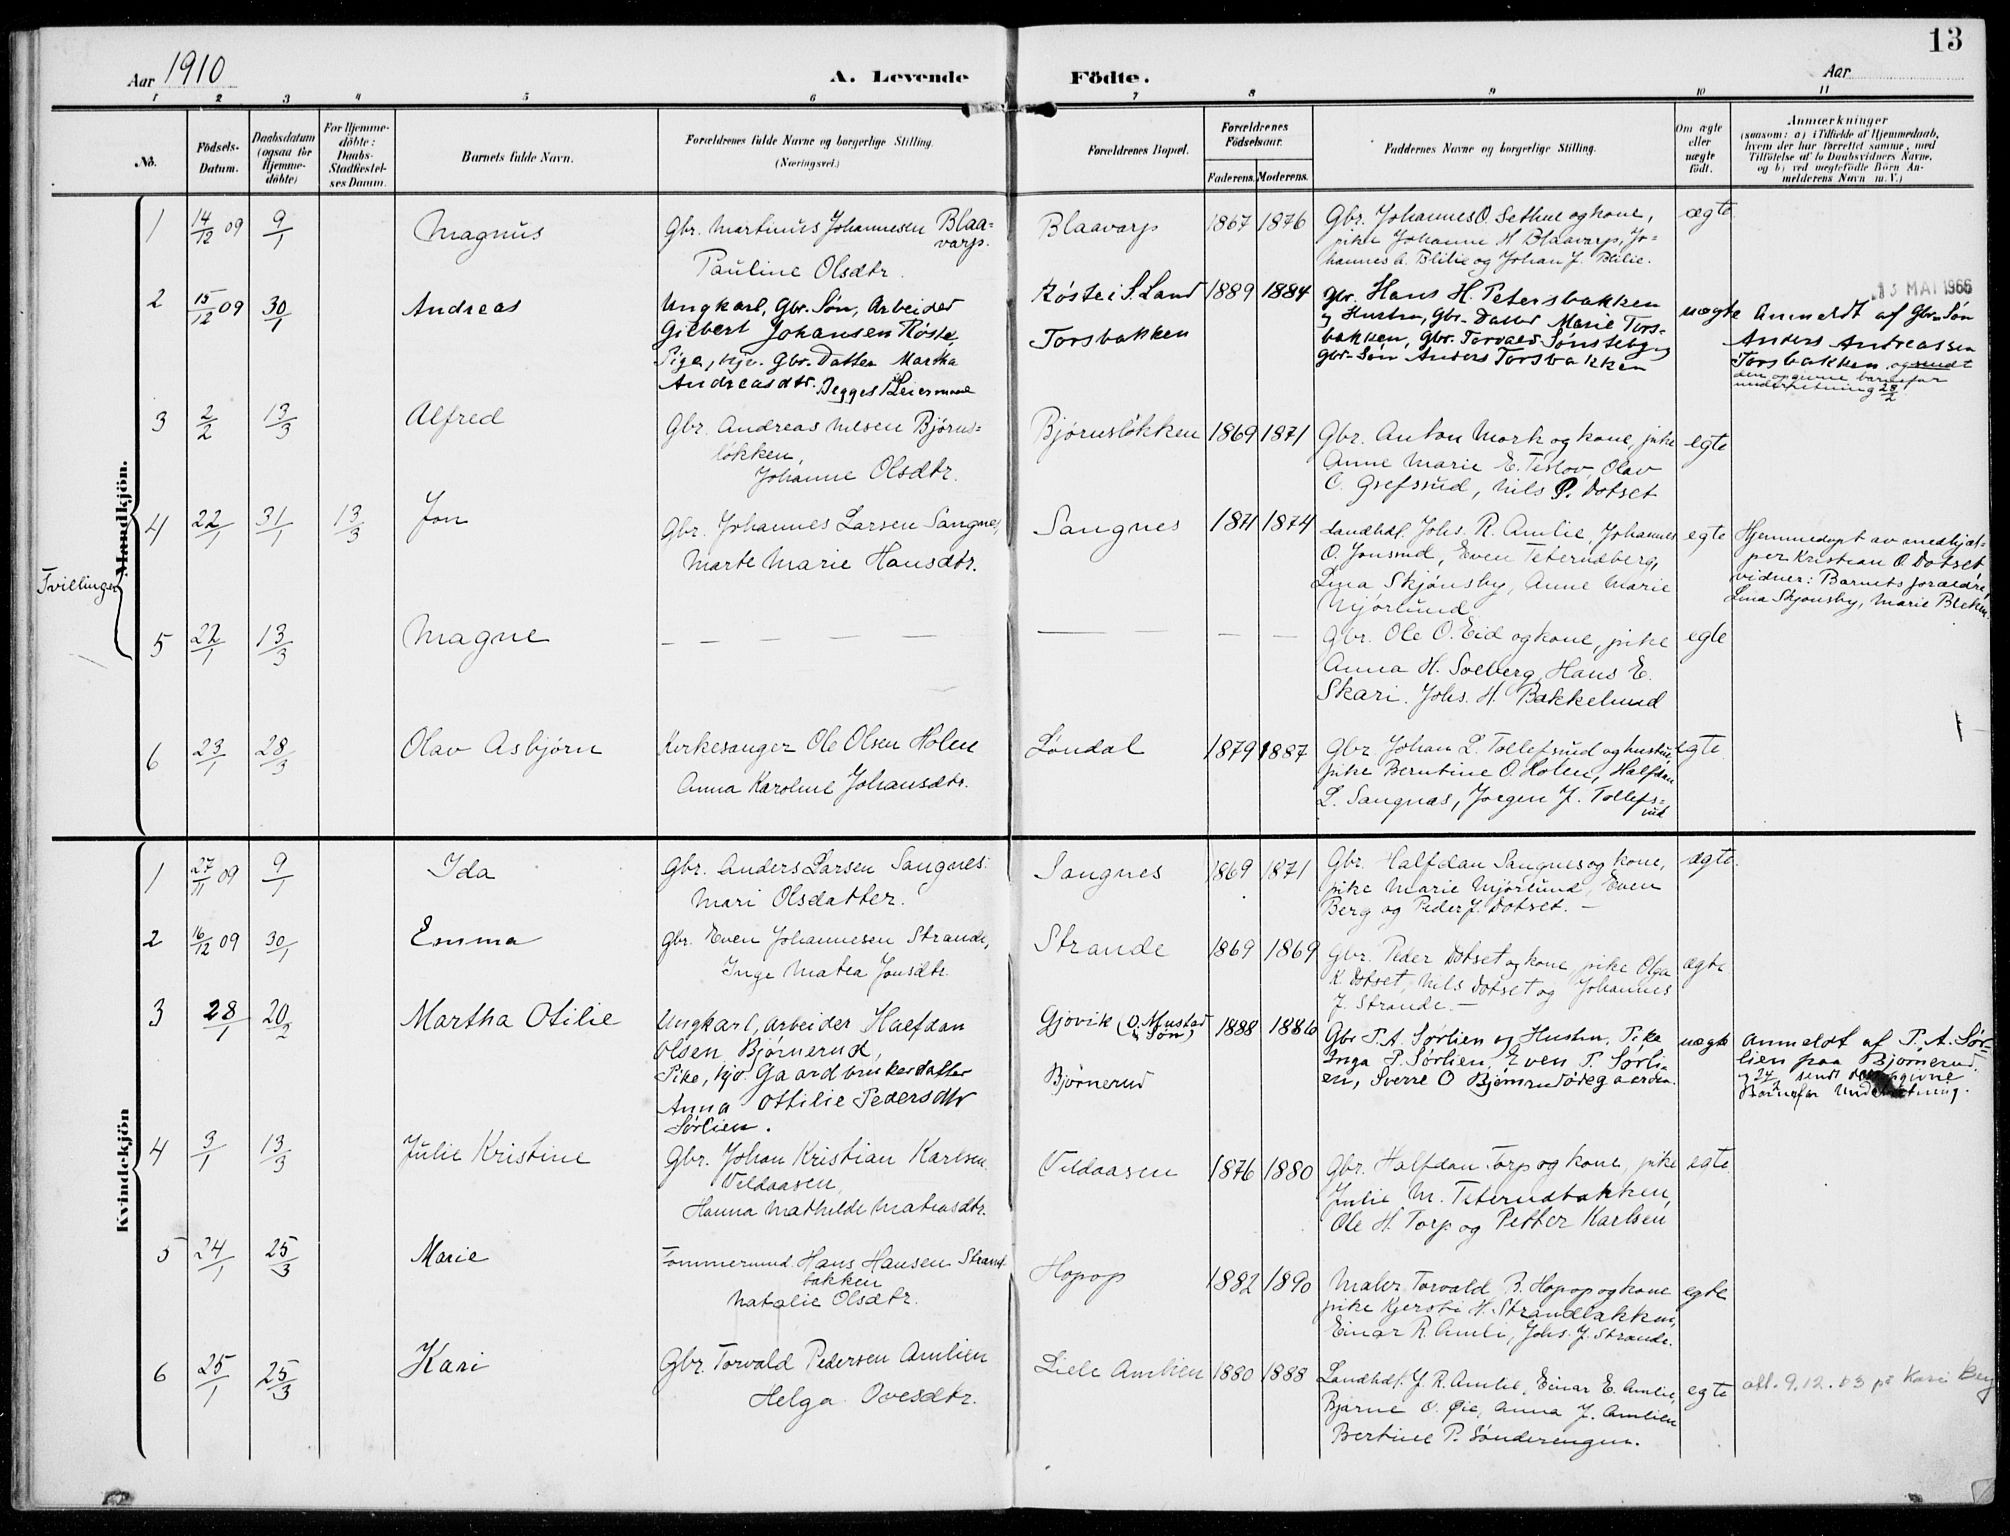 13
Aar 1910
A. Levende Födte.
Aar
1 2 3 4 5 6 7 8 9 10 11
No.
Födsels-
Datum.
Daabsdatum
(ogsaa for
Hjemme-
döbte)
For Hjemme-
döbte:
Daabs-
Stadfæstel-
ses Datum.
Barnets fulde Navn.
Forældrenes fulde Navne og borgerlige Stilling.
(Næringsvei.)
Forældrenes Bopæl.
Forældrenes
Födselsaar.
Faderens. Moderens.
Faddernes Navne og borgerlige Stilling.
Om ægte
eller
uægte
födt.
Anmærkninger
(saasom: a) i Tilfælde af Hjemmedaab,
hvem der har forrettet samme, med
Tilföielse af to Daabsvidners Navne,
og b) ved uægtefödte Börn An-
melderens Navn m. V.)
Mandkjön.
1 14/12 09 9/1 Magnus
Gbr. Martinus Johannesen Blaa=
varp.
Pauline Olsdtr.
Blaavarp 1867 1876
Gbr. Johannes O. Sethne og kone,
pike Johanne H Blaavarp, Jo=
hannes A. Blilie og Johan J. Blilie.
ægte
2 15/12 09 30/1 Andreas
Ungkarl, Gbr. Søn, Arbeider
Gilbert Johansen Røste,
Pige, hjv. Gbr. Datter Martha
Andreasdtr. Begges 1ste Leiermaal
Røste i S. Land
Torsbakken
1889 1884
Gbr. Hans H. Petersbakken
og Hustru, Gbr. Datter Marie Tors-
bakken, Gbr. Torvald Sønsteby og
Gbr. Søn Anders Torsbakken
uægte
13 MAI 1966
Anmeldt af Gbr. Søn
Anders Andreassen
Torsbakken og sendt
den opgivne barnefar
underretning 28/2
3 2/2 13/3 Alfred
Gbr. Andreas Nilsen Bjørns=
løkken,
Johanne Olsdtr.
Bjørnsløkken 1869 1871
Gbr. Anton Mork og kone, pike
Anne Marie E. Teslov, Olav
C. Grefsrud, Nils P. Dotset
egte
Tvillinger
4 22/1 31/1 13/3 Jon
Gbr. Johannes Larsen Sangnes,
Marte Marie Hansdtr.
Sangnes 1871 1874
Landhdl. Johs. R. Amlie, Johannes
O. Jonsrud, Even Teterudberg,
Lina Skjønsby, Anne Marie
Mjørlund
egte
Hjemmedøpt av medhjæl-
per Kristian O Dotset
vidner: Barnets forældre,
Lina Skjønsby, Marie Bleken
5 22/1 13/3 Magne
— — — — —
— — — —
Gbr. Ole O. Eid og kone, pike
Anna H. Solberg, Hans E.
Skari. Johs. H. Bakkelund
egte
6 23/1 28/3 Olav Asbjørn
Kirkesanger Ole Olsen Holen
Anna Karoline Johansdtr.
Løndal 1879 1887
Gbr. Johan L. Tollefsrud og hustru,
pike Berntine O. Holen, Halfdan
L. Sangnæs, Jørgen J. Tollefs=
rud
egte
Kvindekjön
1 27/11 09 9/1 Ida
Gbr. Anders Larsen Sangnes.
Mari Olsdatter.
Sangnes 1869 1871
Gbr. Halfdan Sangnes og kone,
pike Marie Mjørlund, Even
Berg og Peder J. Dotset. —
ægte.
2 16/12 09 30/1 Emma
Gbr. Even Johannesen Strande,
Inge Matea Jonsdtr.
Strande 1869 1869
Gbr. Peder Dotset og kone, pike Olga
K. Dotset, Nils Dotset og Johannes
J. Strande. —
ægte
3 28/1 20/2 Martha Otilie
Ungkarl, Arbeider Halfdan
Olsen Bjørnerud,
Pike, hjv. Gaardbrukerdatter
Anna Ottilie Pedersdtr
Sørlien.
Gjøvik (O. Mustad
& Søn)
Bjørnerud
1888 1886
Gbr P. A. Sørlien og Hustru, Pike
Inga P. Sørlien, Even P. Sørli-
en, Sverre O Bjørnerudødegaarden.
uægte
Anmeldt af P. A. Sør-
lien paa Bjørnerud.
og 24/2 sendt den opgivne
Barnefar Underretning.
4 3/1 13/3 Julie Kristine
Gbr. Johan Kristian Karlsen
Vildaasen
Hanna Mathilde Mateasdtr.
Vildaasen 1876 1880
Gbr. Halfdan Torp og kone, pike
Julie M. Teterudbakken,
Ole H. Torp og Petter Karlsen
egte
5 24/1 25/3 Marie
Tømmermand Hans Hansen Strand-
bakken
Natalie Olsdtr.
Hopop 1882 1890
Maler Torvald B. Hopop og kone
pike Kjersti H. Strandbakken,
Einar R. Amli, Johs. J. Strande.
egte
6 25/1 25/3 Kari
Gbr. Torvald Pedersen Amlien
Helga Ovesdtr.
Lille Amlien 1880 1888
Landhdl. J. R. Amlie, Einar E. Amlie,
Bjarne O. Øie, Anna J. Amlien
Bertine P. Sønderengen.
egte
att. 9.12.53 på Kari Berg